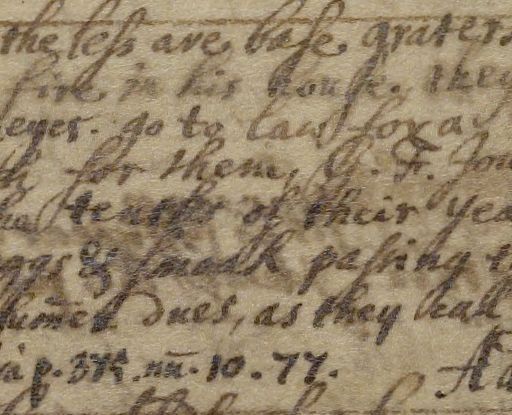 the less are base graters
fire in his house. they
eyes. go to law for a
for them,
tenths of their yea
& small passing t
dues, as they call
p. 371. nu. 10. 77. Ad